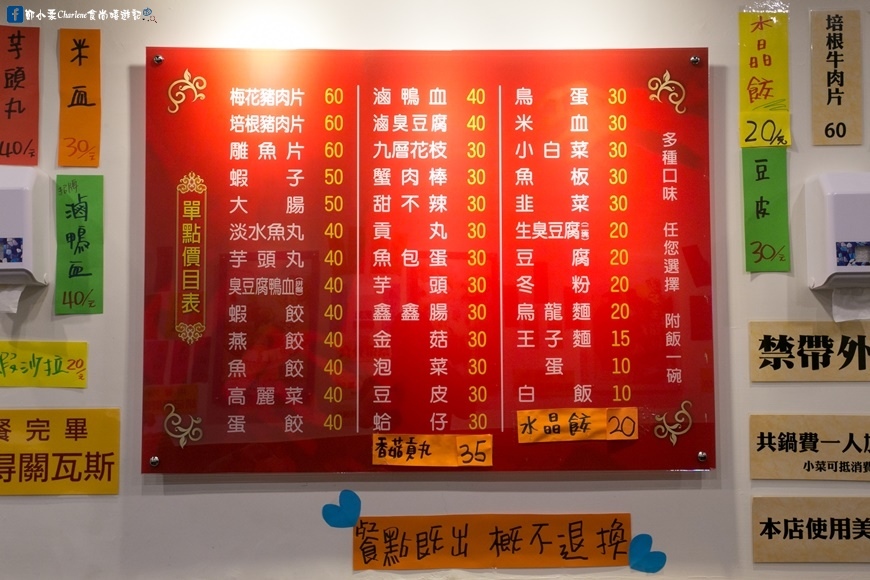 鄭小柔Charlene食尚嬉遊記
芋頭丸
40/元
米血
30/元
滷鴨血
40/元
蝦沙拉 20元
餐完畢
得關瓦斯
單點價目表
梅花豬肉片 60
培根豬肉片 60
雕魚片 60
蝦子 50
大腸 50
淡水魚丸 40
芋頭丸 40
臭豆腐鴨血 40
蝦餃 40
燕餃 40
魚餃 40
高麗菜 40
蛋餃 40
滷鴨血 40
滷臭豆腐 40
九層花枝 30
蟹肉棒 30
甜不辣 30
貢丸 30
魚包蛋 30
芋頭 30
鑫鑫腸 30
金菇 30
泡菜 30
豆皮 30
蛤仔 30
香菇貢丸 35
鳥蛋 30
米血 30
小白菜 30
魚板 30
韭菜 30
生臭豆腐 20
豆腐 20
冬粉 20
烏龍麵 20
王子麵 15
蛋 10
白飯 10
水晶餃 20
多種口味 任您選擇 附飯一碗
水晶餃
20/元
豆皮
30/元
培根牛肉片
60
禁帶外
共鍋費一人
小菜可抵消費
本店使用美
餐點既出 概不退換